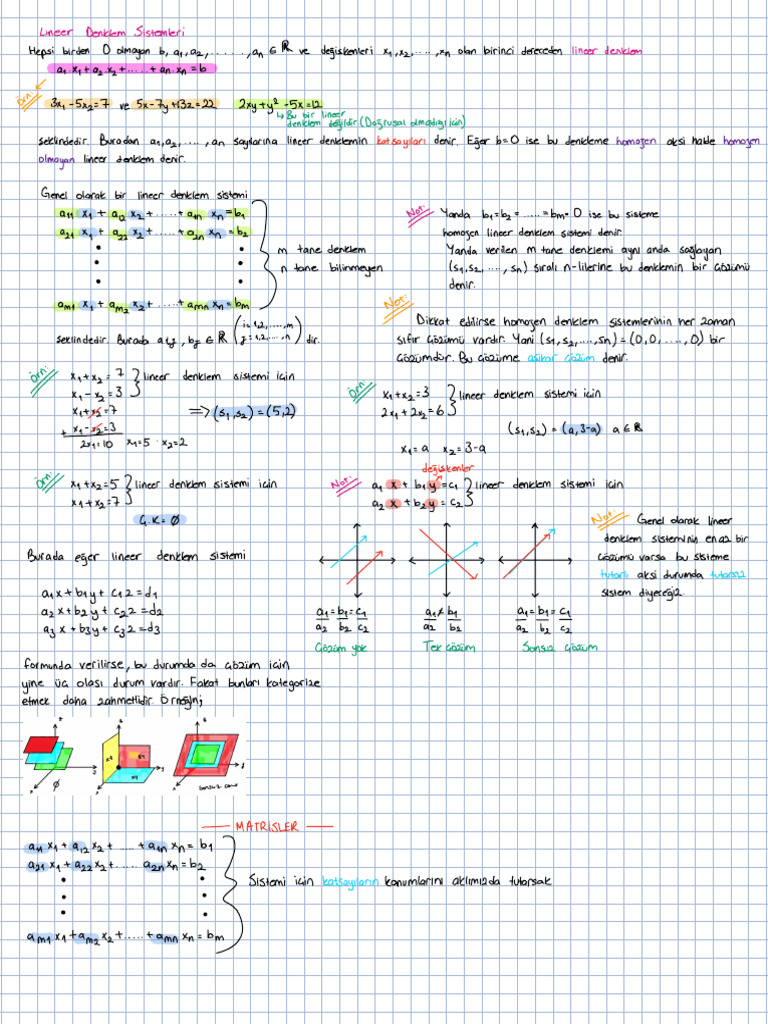 Lineer Denklem Sistemleri
Hepsi birden 0 olmayan b, a₁,a₂,......,aₙ ∈ ℝ ve değişkenleri x₁,x₂,....,xₙ olan birinci dereceden lineer denklem
a₁.x₁+a₂.x₂+.....+aₙ.xₙ=b
Örn:
3x₁-5x₂=7 ve 5x-7y+13z=22 2xy+y²-5x=12
↳ Bu bir lineer
denklem değildir.(Doğrusal olmadığı için)
şeklindedir. Buradan a₁,a₂,....,aₙ sayılarına lineer denklemin katsayıları denir. Eğer b=0 ise bu denkleme homojen aksi halde homojen
olmayan lineer denklem denir.
Genel olarak bir lineer denklem sistemi
a₁₁ x₁ + a₁₂ x₂+.....+a₁ₙ xₙ=b₁
a₂₁ x₁ + a₂₂ x₂+.....+a₂ₙ xₙ=b₂
m tane denklem
n tane bilinmeyen
aₘ₁ x₁ + aₘ₂ x₂+.....+aₘₙ xₙ=bₘ
şeklindedir. Burada aᵢⱼ, bᵢⱼ ∈ ℝ (i=1,2,....,m
j=1,2,....,n) dir.
Not: Yanda b₁=b₂=....=bₘ=0 ise bu sisteme
homojen lineer denklem sistemi denir.
Yanda verilen m tane denklemi aynı anda sağlayan
(s₁,s₂,...., sₙ) sıralı n-lilerine bu denklemin bir çözümü
denir.
Not:
Dikkat edilirse homojen denklem sistemlerinin her zaman
sıfır çözümü vardır. Yani (s₁,s₂,....,sₙ)=(0,0,....,0) bir
çözümdür. Bu çözüme aşikar çözüm denir.
Örn:
x₁+x₂=7
x₁-x₂=3
lineer denklem sistemi için
x₁+x₂=7
+ x₁-x₂=3
2x₁=10 x₁=5 · x₂=2
=>> (s₁,s₂)=(5,2)
Örn:
x₁+x₂=3
2x₁+2x₂=6
lineer denklem sistemi için
(s₁,s₂)=(a,3-a) a∈ℝ
x₁=a x₂=3-a
Örn:
x₁+x₂=5
x₁+x₂=7
lineer denklem sistemi için
Ç.K=∅
değişkenler
Not:
a₁ x + b₁ y=c₁
a₂ x + b₂ y=c₂
lineer denklem sistemi için
a₁=b₁=c₁
a₂ b₂ c₂
Çözüm yok
a₁≠b₁
a₂ b₂
Tek çözüm
a₁=b₁=c₁
a₂ b₂ c₂
Sonsuz çözüm
Not: Genel olarak lineer
denklem sisteminin en az bir
çözümü varsa bu sisteme
tutarlı aksi durumda tutarsız
sistem diyeceğiz.
Burada eğer lineer denklem sistemi
a₁x+b₁y+c₁z=d₁
a₂x+b₂y+c₂z=d₂
a₃x+b₃y+c₃z=d₃
formunda verilirse, bu durumda da çözüm için
yine üç olası durum vardır. Fakat bunları kategorize
etmek daha zahmetlidir. Örneğin;
∅
MATRİSLER
a₁₁ x₁+a₁₂ x₂+.... +a₁ₙ xₙ=b₁
a₂₁ x₁+a₂₂ x₂+..... a₂ₙ xₙ=b₂
Sistemi için katsayıların konumlarını aklımızda tutarsak
aₘ₁ x₁+aₘ₂ x₂+.....+aₘₙ xₙ=bₘ